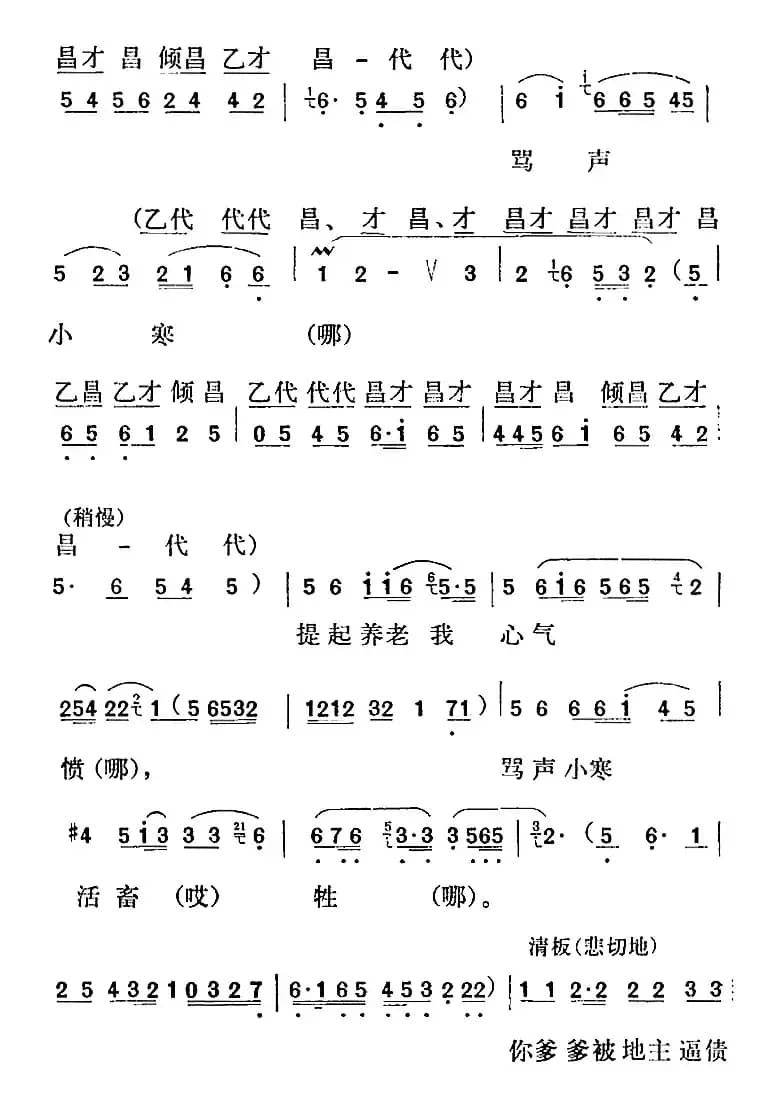 昌才 昌 倾昌 乙才 昌 - 代 代)
5 4 5 6 2 4 4 2 | 1/7 6· 5 4 5 6) | 6 i 1/7 6 6 5 4 5 |
骂 声
(乙代 代代 昌、才 昌、才 昌才 昌才 昌才 昌
5 2 3 2 1 6 6 | 1 2 - V 3 | 2 1/7 6 5 3 2 (5 |
小 寒 (哪)
乙昌 乙才 倾昌 乙代 代代 昌才 昌才 昌才 昌 倾昌 乙才
6 5 6 1 2 5 | 0 5 4 5 6·i 6 5 | 4 4 5 6 i 6 5 4 2
(稍慢)
昌 - 代 代)
5· 6 5 4 5 ) | 5 6 i i 6 6/7 5·5 | 5 6 i 6 5 6 5 4/7 2 |
提起养老 我 心气
2 5 4 2 2 2/7 1 (5 6 5 3 2 | 1 2 1 2 3 2 1 7 1) | 5 6 6 6 i 4 5 |
愤(哪), 骂声小寒
#4 5 i 3 3 3 21 6 | 6 7 6 5 3·3 3 5 6 5 | 3 2· (5 6· 1 |
活畜 (哎) 牲 (哪)。
清板(悲切地)
2 5 4 3 2 1 0 3 2 7 | 6·1 6 5 4 5 3 2 2 2) | 1 1 2·2 2 2 3 3
你爹 爹被 地主 逼债